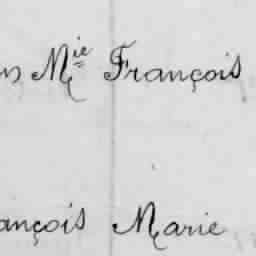 Mie François
ançois Marie